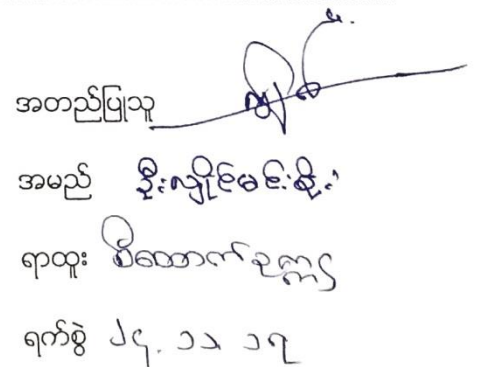 အတည်ပြုသူ
အမည် ဦးလှိုင်မင်းစိုး
ရာထူး စီထောက်ဥက္ကဌ
ရက်စွဲ ၂၄.၁၁.၁၇